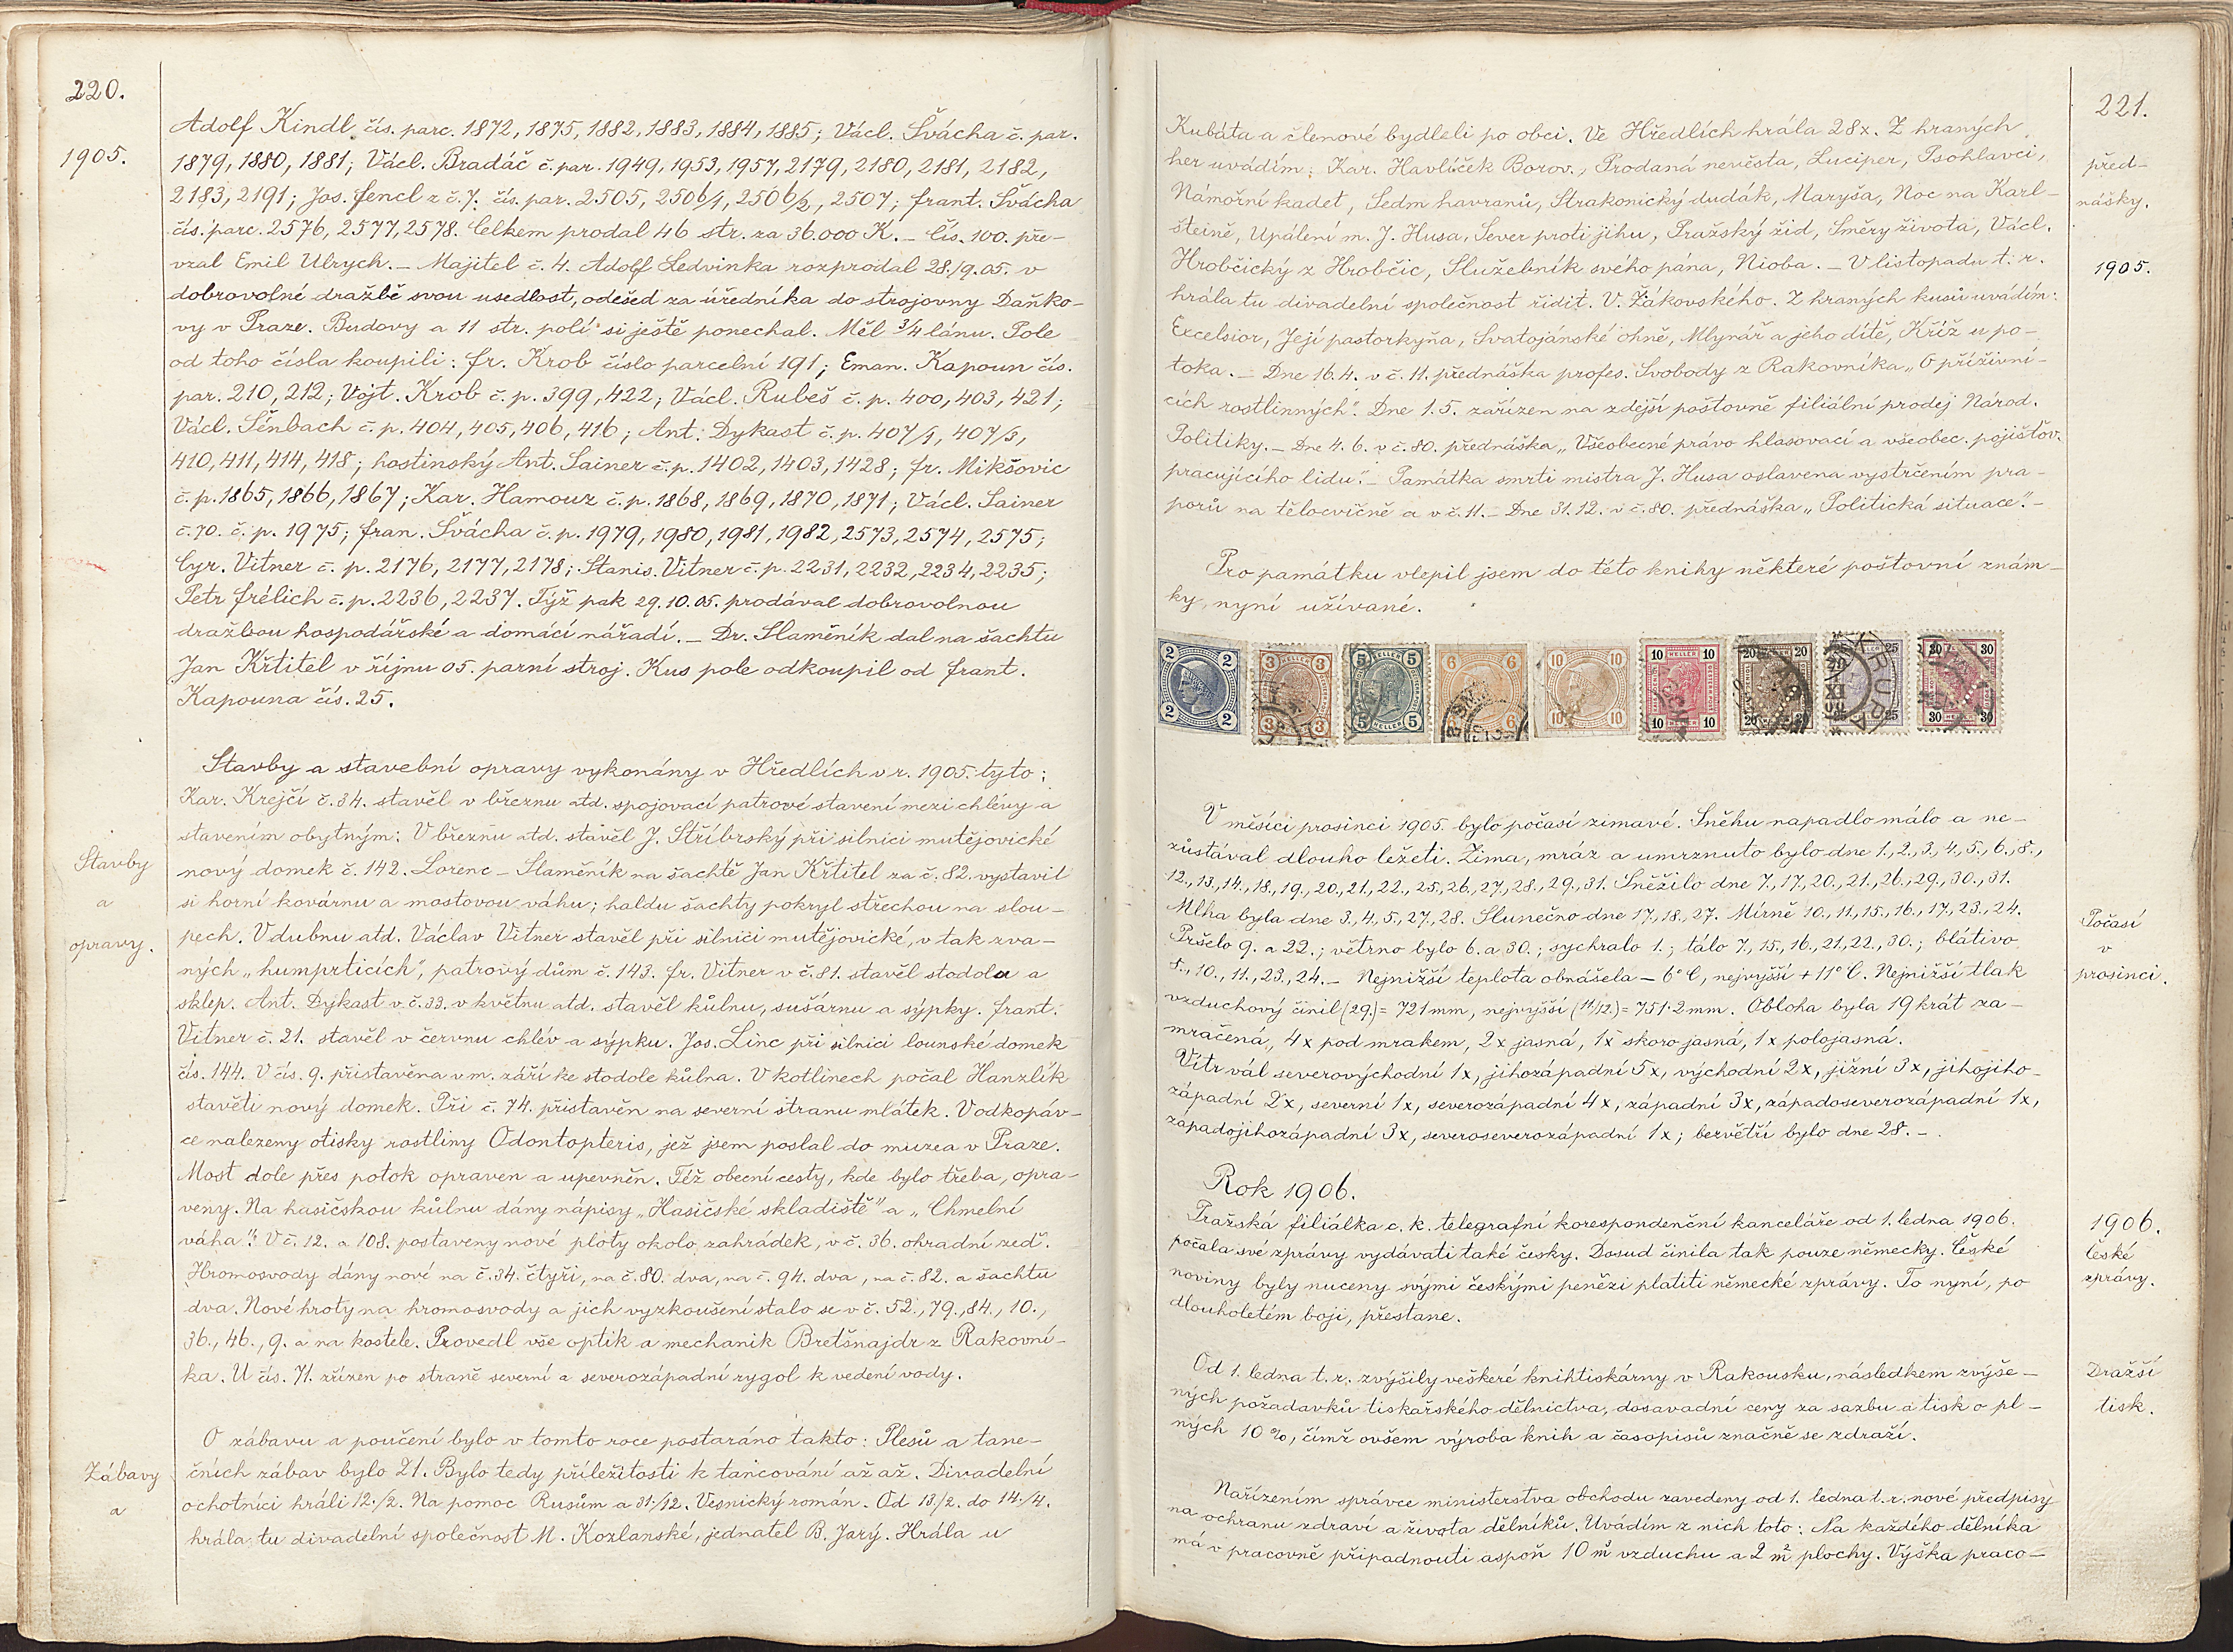 220.
1905.
Adolf Kindl čís. parc. 1872, 1875, 1882, 1883, 1884, 1885; Václ. Švácha č. par.
1879, 1880, 1881; Václ. Bradáč č. par. 1949, 1953, 1957, 2179, 2180, 2181, 2182,
2183, 2191; Jos. Fencl z č. 7. čís. par. 2505, 2506/1, 2506/2, 2507; Frant. Švácha
čís. parc. 2576, 2577, 2578. Celkem prodal 46 str. za 36.000 K. – Čís. 100. pře-
vzal Emil Ulrych. – Majitel č. 4. Adolf Ledvinka rozprodal 28./9.05. v
dobrovolné dražbě svou usedlost, odešed za úředníka do strojovny Daňko-
vy v Praze. Budovy a 11 str. polí si ještě ponechal. Měl 3/4 lánu. Pole
od toho čísla koupili: Fr. Krob číslo parcelní 191; Eman. Kapoun čís.
par. 210, 212; Vojt. Krob č. p. 399, 422; Václ. Rubeš č. p. 400, 403, 421;
Václ. Šénbach č. p. 404, 405, 406, 416; Ant. Dykast č. p. 407/1, 407/3,
410, 411, 414, 418; hostinský Ant. Sainer č. p. 1402, 1403, 1428; Fr. Mikšovic
č. p. 1865, 1866, 1867; Kar. Hamouz č. p. 1868, 1869, 1870, 1871; Václ. Sainer
č. 70. č. p. 1975; Fran. Švácha č. p. 1979, 1980, 1981, 1982, 2573, 2574, 2575;
Cyr. Vitner č. p. 2176, 2177, 2178; Stanis. Vitner č. p. 2231, 2232, 2234, 2235;
Petr Frélich č. p. 2236, 2237. Týž pak 29.10.05. prodával dobrovolnou
dražbou hospodářské a domácí nářadí. – Dr. Slaměník dal na šachtu
Jan Křtitel v říjnu 05. parní stroj. Kus pole odkoupil od Frant.
Kapouna čís. 25.
Stavby
a
opravy.
Stavby a stavební opravy vykonány v Hředlích v r. 1905. tyto:
Kar. Krejčí č. 34. stavěl v březnu atd. spojovací patrové stavení mezi chlévy a
stavením obytným: V březnu atd. stavěl J. Stříbrský při silnici mutějovické
nový domek č. 142. Lorenc – Slaměník na šachtě Jan Křtitel za č. 82. vystavil
si horní kovárnu a mostovou váhu; haldu šachty pokryl střechou na slou-
pech. V dubnu atd. Václav Vitner stavěl při silnici mutějovické, v tak zva-
ných „humprticích", patrový dům č. 143. Fr. Vitner v č. 81. stavěl stodolu a
sklep. Ant. Dykast v č. 33. v květnu atd. stavěl kůlnu, sušárnu a sýpky. Frant.
Vitner č. 21. stavěl v červnu chlév a sýpku. Jos. Linc při silnici lounské domek
čís. 144. V čís. 9. přistavěna v m. září ke stodole kůlna. V kotlinech počal Hanzlík
stavěti nový domek. Při č. 74. přistavěn na severní stranu mlátek. V odkopáv-
ce nalezeny otisky rostliny Odontopteris, jež jsem poslal do muzea v Praze.
Most dole přes potok opraven a upevněn. Též obecní cesty, kde bylo třeba, opra-
veny. Na hasičskou kůlnu dány nápisy „Hasičské skladiště" a „Chmelní
váha". V č. 12. a 108. postaveny nové ploty okolo zahrádek, v č. 36. ohradní zeď.
Hromosvody dány nové na č. 34. čtyři, na č. 80. dva, na č. 94. dva, na č. 82. a šachtu
dva. Nové hroty na hromosvody a jich vyzkoušení stalo se v č. 52., 79., 84., 10.,
36., 46., 9. a na kostele. Provedl vše optik a mechanik Bretšnajdr z Rakovní-
ka. U čís. 71. zřízen po straně severní a severozápadní rygol k vedení vody.
Zábavy
a
O zábavu a poučení bylo v tomto roce postaráno takto: Plesů a tane-
čních zábav bylo 21. Bylo tedy příležitosti k tancování až až. Divadelní
ochotníci hráli 12./2. Na pomoc Rusům a 31./12. Vesnický román. Od 13./2. do 14./4.
hrála tu divadelní společnost M. Kozlanské, jednatel B. Jarý. Hrála u
221.
před-
nášky.
1905.
Kubáta a členové bydleli po obci. Ve Hředlích hrála 28x. Z hraných
her uvádím: Kar. Havlíček Borov., Prodaná nevěsta, Luciper, Psohlavci,
Námořní kadet, Sedm havranů, Strakonický dudák, Maryša, Noc na Karl-
šteině, Upálení m. J. Husa, Sever proti jihu, Pražský žid, Směry života, Václ.
Hrobčický z Hrobčic, Služebník svého pána, Nioba. – V listopadu t. r.
hrála tu divadelní společnost řidit. V. Žákovského. Z hraných kusů uvádím:
Excelsior, Její pastorkyňa, Svatojánské ohně, Mlynář a jeho dítě, Kříž u po-
toka. – Dne 16.4. v č. 11. přednáška profes. Svobody z Rakovníka „O příživní-
cích rostlinných". Dne 1.5. zařízen na zdejší poštovně filiální prodej Národ.
Politiky. – Dne 4.6. v č. 80. přednáška „Všeobecné právo hlasovací a všeobec. pojišťov.
pracujícího lidu". – Památka smrti mistra J. Husa oslavena vystrčením pra-
porů na tělocvičně a v č. 11. – Dne 31.12. v č. 80. přednáška „Politická situace". –
Pro památku vlepil jsem do této knihy některé poštovní znám-
ky, nyní užívané.
2 2 2 2
3 HELLER 3 3 3
5 5 5 HELLER 5
6 6 6
10 10 10 10
10 HELLER 10 10 10
20 20 20
25 25 25
30 30 30 30
Počasí
v
prosinci.
V měsíci prosinci 1905. bylo počasí zimavé. Sněhu napadlo málo a ne-
zůstával dlouho ležeti. Zima, mráz a umrznuto bylo dne 1., 2., 3., 4., 5., 6., 8.,
12., 13., 14., 18., 19., 20., 21., 22., 25., 26., 27., 28., 29., 31. Sněžilo dne 7., 17., 20., 21., 26., 29., 30., 31.
Mlha byla dne 3., 4., 5., 27., 28. Slunečno dne 17., 18., 27. Mírně 10., 11., 15., 16., 17., 23., 24.
Pršelo 9. a 22.; větrno bylo 6. a 30.; sychralo 1.; tálo 7., 15., 16., 21., 22., 30.; blátivo
8., 10., 11., 23., 24. – Nejnižší teplota obnášela – 6° C, nejvyšší + 11° C. Nejnižší tlak
vzduchový činil (29.) = 721 mm, nejvyšší (11/12.) = 751·2 mm. Obloha byla 19 krát za-
mračená, 4x pod mrakem, 2x jasná, 1x skoro jasná, 1x polojasná.
Vítr vál severovýchodní 1x, jihozápadní 5x, východní 2x, jižní 3x, jihojiho-
západní 2x, severní 1x, severozápadní 4x, západní 3x, západoseverozápadní 1x,
západojihozápadní 3x, severoseverozápadní 1x; bezvětří bylo dne 28. –
Rok 1906.
1906.
České
zprávy.
Pražská filiálka c. k. telegrafní korespondenční kanceláře od 1. ledna 1906.
počala své zprávy vydávati také česky. Dosud činila tak pouze německy. České
noviny byly nuceny svými českými penězi platiti německé zprávy. To nyní, po
dlouholetém boji, přestane.
Dražší
tisk.
Od 1. ledna t. r. zvýšily veškeré knihtiskárny v Rakousku, následkem zvýše-
ných požadavků tiskařského dělnictva, dosavadní ceny za sazbu a tisk o pl-
ných 10 %, čímž ovšem výroba knih a časopisů značně se zdraží.
Nařízením správce ministerstva obchodu zavedeny od 1. ledna t. r. nové předpisy
na ochranu zdraví a života dělníků. Uvádím z nich toto: Na každého dělníka
má v pracovně připadnouti aspoň 10 m³ vzduchu a 2 m² plochy. Výška praco-